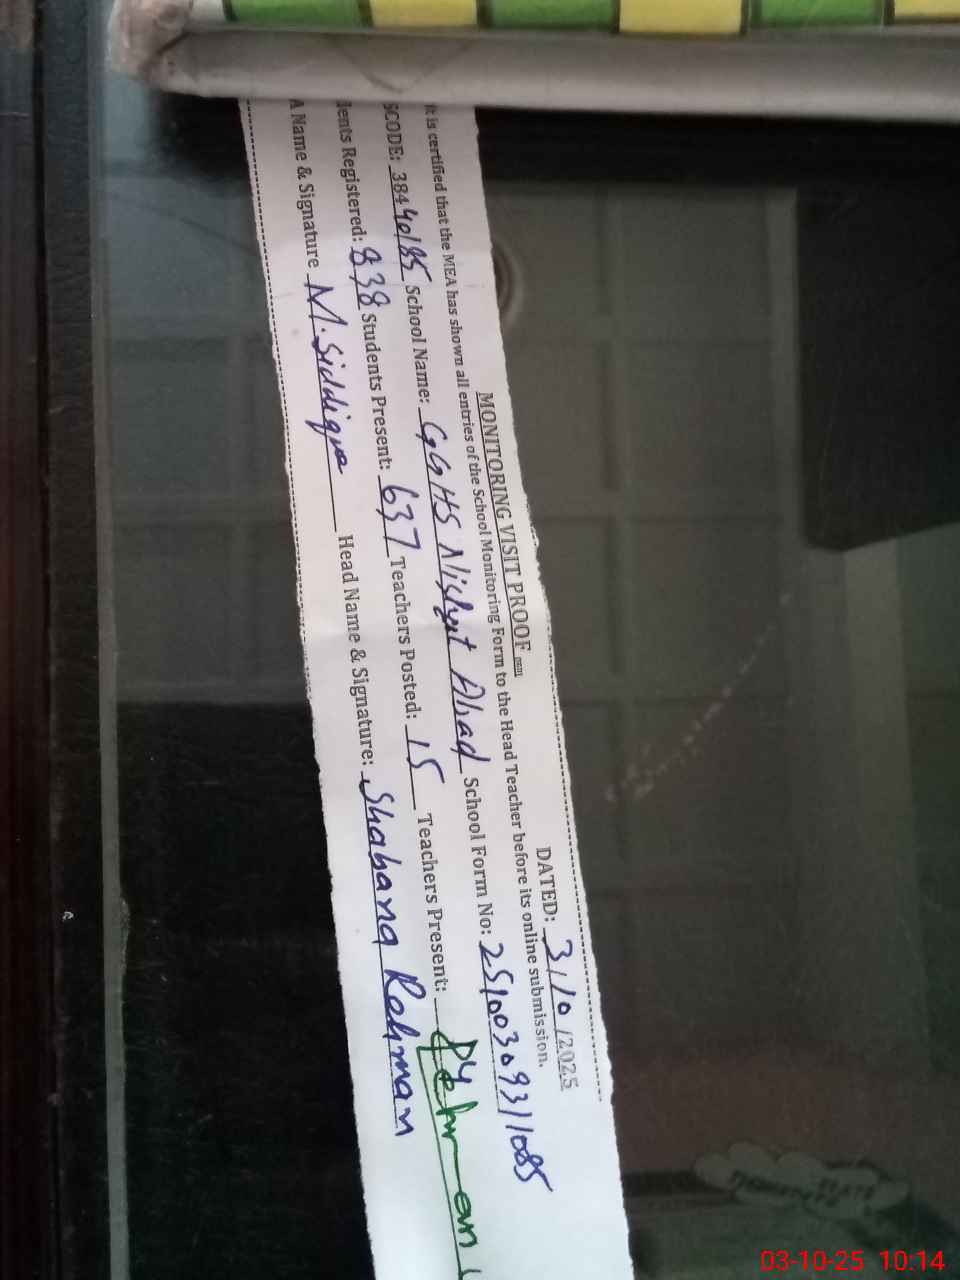 MONITORING VISIT PROOF DATED: 3/10/2025
It is certified that the MEA has shown all entries of the School Monitoring Form to the Head Teacher before its online submission.
SCODE: 38440185 School Name: GGHS Nishat Abad School Form No: 25100309311085
dents Registered: 838 Students Present: 637 Teachers Posted: 15 Teachers Present:
A Name & Signature M. Siddique Head Name & Signature: Shabana Rehman
03-10-25 10:14